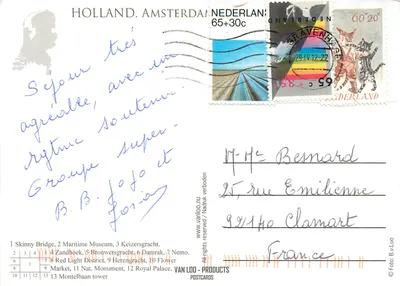 HOLLAND, AMSTERDAM
NEDERLAND
65+30c
60+20
NEDERLAND
65
Séjour très
agréable, avec un
rythme soutenu.
Groupe super.
B.B. Jojo et
Josia
M. Me Besnard
25, rue Emilienne
92140 Clamart
France
www.vanloo.nu
All rights reserved / Nadruk verboden
1 Skinny Bridge, 2 Maritime Museum, 3 Keizersgracht,
4 Zandhoek, 5 Brouwersgracht, 6 Damrak, 7 Nemo,
8 Red Light District, 9 Herengracht, 10 Flower
Market, 11 Nat. Monument, 12 Royal Palace,
13 Montelbaan tower
VAN LOO - PRODUCTS
POSTCARDS
Foto: B.v.Loo